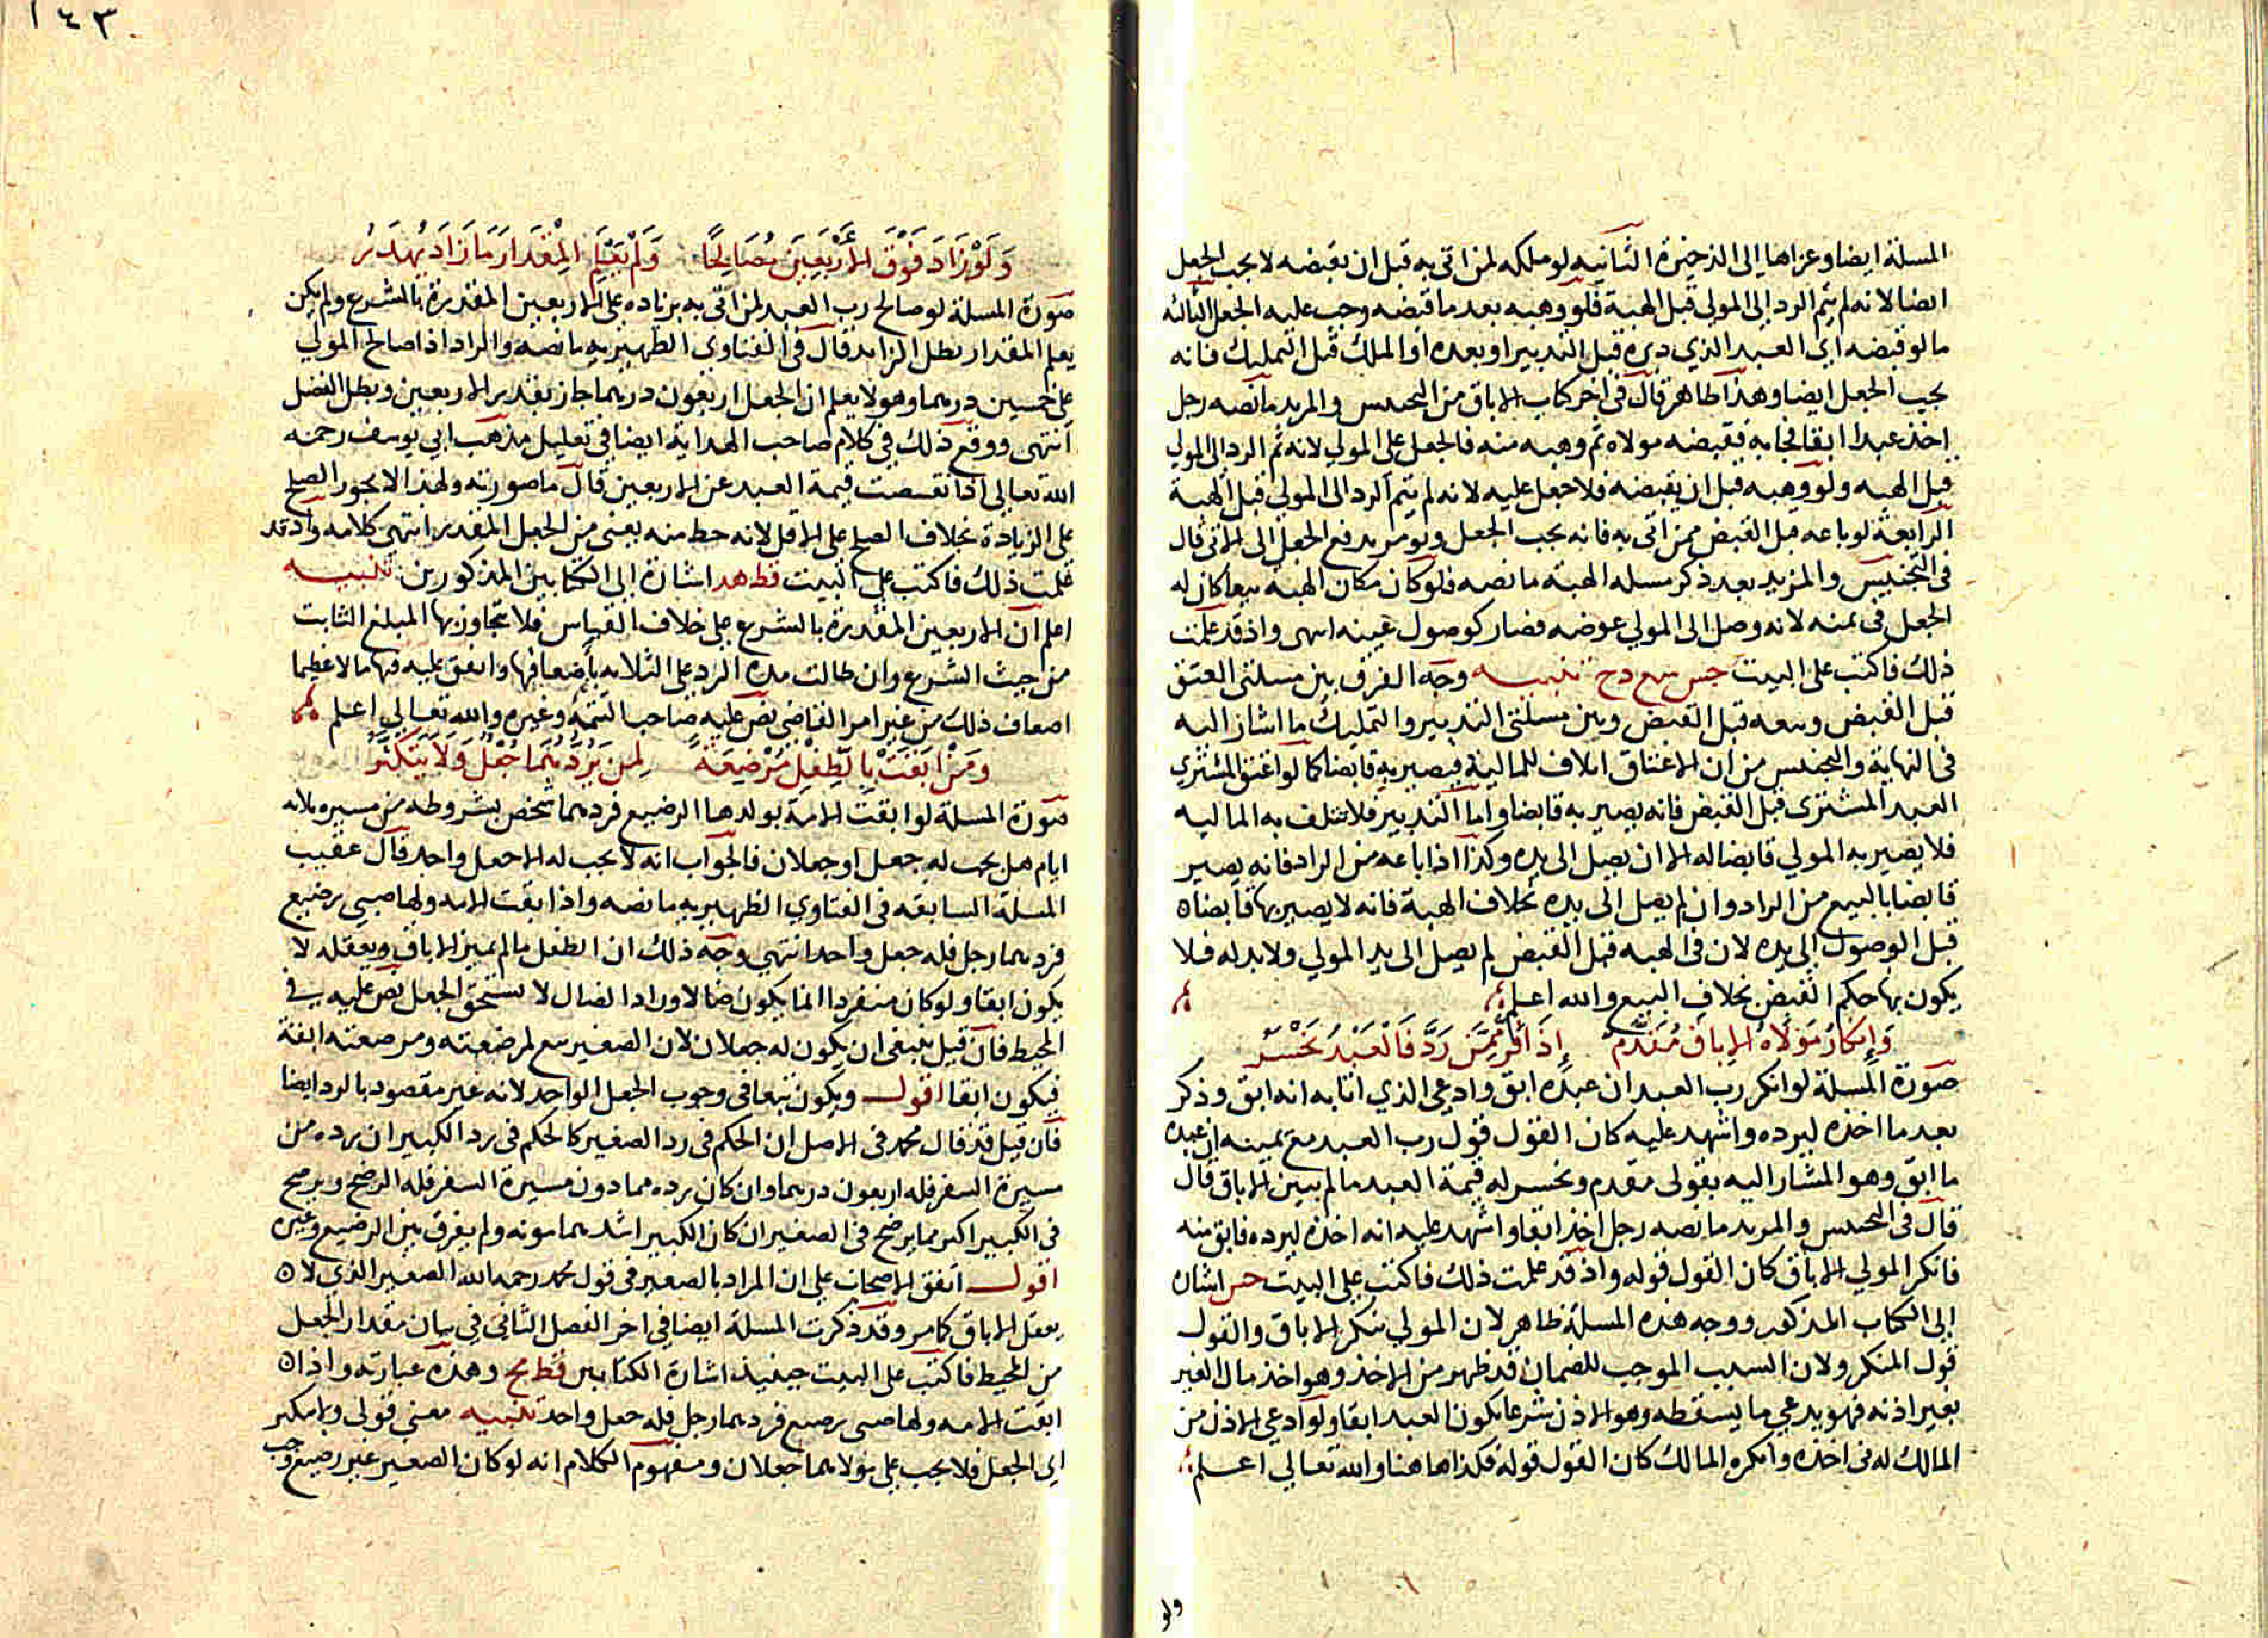 المسلة ايضا وعزاها الى الذخيرة الثانيه لو ملكه لمن اتى به قبل ان يقبضه لا يجب الجعل
ايضا لانه لم يتم الرد الى المولى قبل الهبة فلو وهبه بعد ما قبضه وجب عليه الجعل الثالثه
ما لو قبضه اي العبد الذي دبره قبل التدبير او بعده او الملك قبل التمليك فانه
يجب الجعل ايضا وهذا ظاهر قال في اخر كتاب الاباق من التجنيس والمزيد ما نصه رجل
اخذ عبدا ابقا فجا به فقبضه مولاه ثم وهبه منه فالجعل على المولى لانه تم الرد الى المولى
قبل الهبه ولو وهبه قبل ان يقبضه فلا جعل عليه لانه لم يتم الرد الى المولى قبل الهبة
الرابعة لو باعه قبل القبض ممن اتى به فانه يجب الجعل ويومر بدفع الجعل الى الاتي قال
في التجنيس والمزيد بعد ذكر مسله الهبة ما نصه فلو كان مكان الهبه بيعا كان له
الجعل في ثمنه لانه وصل الى المولى عوضه فصار كوصول عينه انتهى واذ قد علمت
ذلك فاكتب على البيت جس سع دح تنبيه وجه الفرق بين مسلتي العتق
قبل القبض وبيعه قبل القبض وبين مسلتي التدبير والتمليك ما اشار اليه
في النهاية والتجنيس من ان الاعتاق اتلاف للمالية فيصير به قابضا كما لو اعتق المشتري
العبد المشترى قبل القبض فانه يصير به قابضا واما التدبير فلا تتلف به الماليه
فلا يصير به المولى قابضا له الا ان يصل الى يده وكذا اذا باعه من الراد فانه يصير
قابضا بالبيع من الراد وان لم يصل الى يده بخلاف الهبة فانه لا يصير بها قابضا
قبل الوصول الى يده لان في الهبه قبل القبض لم يصل الى يد المولى ولا بدله فلا
يكون بها حكم القبض بخلاف البيع والله اعلم
وَإِنكَارُ مَوْلَاهُ الإباق مُقَدَّمٌ إِذَا أَقَرَّ مِمَّنْ رَدَّ فَالْعَبْدُ يَخْسَرُ
صورة المسلة لو انكر رب العبد ان عبده ابق وادعى الذي اتا به انه ابق وذكر
بعد ما اخذه ليرده واشهد عليه كان القول قول رب العبد مع يمينه ان عبده
ما ابق وهو المشار اليه بقولي مقدم ويخسر له قيمة العبد ما لم يبين الاباق قال
قال في التجنيس والمزيد ما نصه رجل اخذ ابقا واشهد عليه انه اخذه ليرده فابق منه
فانكر المولى الاباق كان القول قوله واذ قد علمت ذلك فاكتب على البيت جس اشارة
الى الكتاب المذكور ووجه هذه المسلة ظاهر لان المولى ينكر الاباق والقول
قول المنكر ولان السبب الموجب للضمان قد ظهر من الاخذ وهو اخذ مال الغير
بغير اذنه فهو يدعي ما يسقطه وهو الاذن شرعا بكون العبد ابقا ولو ادعى الاذن من
المالك له في اخذه وانكره المالك كان القول قوله فكذا هاهنا والله تعالى اعلم
ولو
١٤٣
وَلَوْ زَادَ فَوْقَ الأَرْبَعِينَ مُصَالِحًا وَلَمْ يَعْلَمِ الْمِقْدَارَ مَا زَادَ يُهْدَرُ
صورة المسلة لو صالح رب العبد لمن اتى به بزياده على الاربعين المقدرة بالشرع ولم يكن
يعلم المقدار بطل الزايد قال في الفتاوى الظهيريه ما نصه والراد اذا صالح المولى
على خمسين درهما وهو لا يعلم ان الجعل اربعون درهما جاز بقدر الاربعين وبطل الفضل
انتهى ووقع ذلك في كلام صاحب الهداية ايضا في تعليل مذهب ابي يوسف رحمه
الله تعالى اذا نقصت قيمة العبد عن الاربعين قال ما صورته ولهذا لا يجوز الصلح
على الزيادة بخلاف الصلح على الاقل لانه حط منه يعني من الجعل المقدر انتهى كلامه واذ قد
علمت ذلك فاكتب على البيت قط هد اشارة الى الكتابين المذكورين تنبيه
اعلم ان الاربعين المقدرة بالشرع على خلاف القياس فلا يتجاوز بها المبلغ الثابت
من حيث الشرع وان طالت مدة الرد على الثلاثه باضعافها وانفق عليه فيها مالا عظيما
اضعاف ذلك من غير امر القاضي نص عليه صاحب التتمة وغيره والله تعالى اعلم
وَمَنْ ابَقَتْ بِالطِّفْلِ مُرْضِعَةً لِمَن يَرُدُّهُمَا جُعْلٌ وَلَا يَتَكَثَّرُ
صورة المسلة لو ابقت الامة بولدها الرضيع فردهما شخص بشروطه من مسيره ثلاثه
ايام هل يجب له جعل او جعلان فالجواب انه لا يجب له الا جعل واحد قال عقيب
المسلة السابقه في الفتاوى الظهيريه ما نصه واذا ابقت الامه ولها صبي رضيع
فردهما رجل فله جعل واحد انتهى وجه ذلك ان الطفل ما لم يميز الاباق ويعقله لا
يكون ابقا ولو كان منفردا انما يكون ضالا وراد الضال لا يستحق الجعل نص عليه في
المحيط فان قيل ينبغي ان يكون له جعلان لان الصغير تبع لمرضعته ومرضعته ابقة
فيكون ابقا اقول ويكون تبعا في وجوب الجعل الواحد لانه غير مقصود بالرد ايضا
فان قيل قد قال محمد في الاصل ان الحكم في رد الصغير كالحكم في رد الكبير ان رده من
مسيرة السفر فله اربعون درهما وان كان يرده مما دون مسيرة السفر فله الرضخ ويرضخ
في الكبير اكثر مما يرضخ في الصغير ان كان الكبير اشدهما مونه ولم يفرق بين الرضيع وغيره
اقول اتفق الاصحاب على ان المراد بالصغير في قول محمد رحمه الله الصغير الذي لا
يعقل الاباق كما مر وقد ذكرت المسلة ايضا في اخر الفصل الثاني في بيان مقدار الجعل
من المحيط فاكتب على البيت حينيذ اشارة الكتابين قط مح وهذه عبارته واذا
ابقت الامه ولها صبي رضيع فردهما رجل فله جعل واحد تنبيه معنى قولي ولا يتكثر
اي الجعل فلا يجب على مولاهما جعلان ومفهوم الكلام انه لو كان الصغير غير رضيع وجب